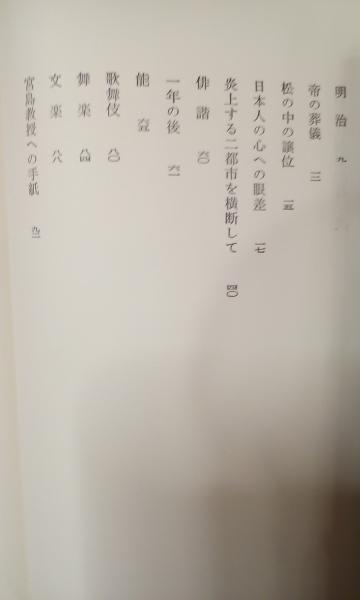 明治 九
帝の葬儀 一三
松の中の譲位 一五
日本人の心への眼差 一七
炎上する二都市を横断して 四〇
俳諧 六〇
一年の後 六一
能 六三
歌舞伎 八〇
舞楽 八四
文楽 八八
宮島教授への手紙 九一